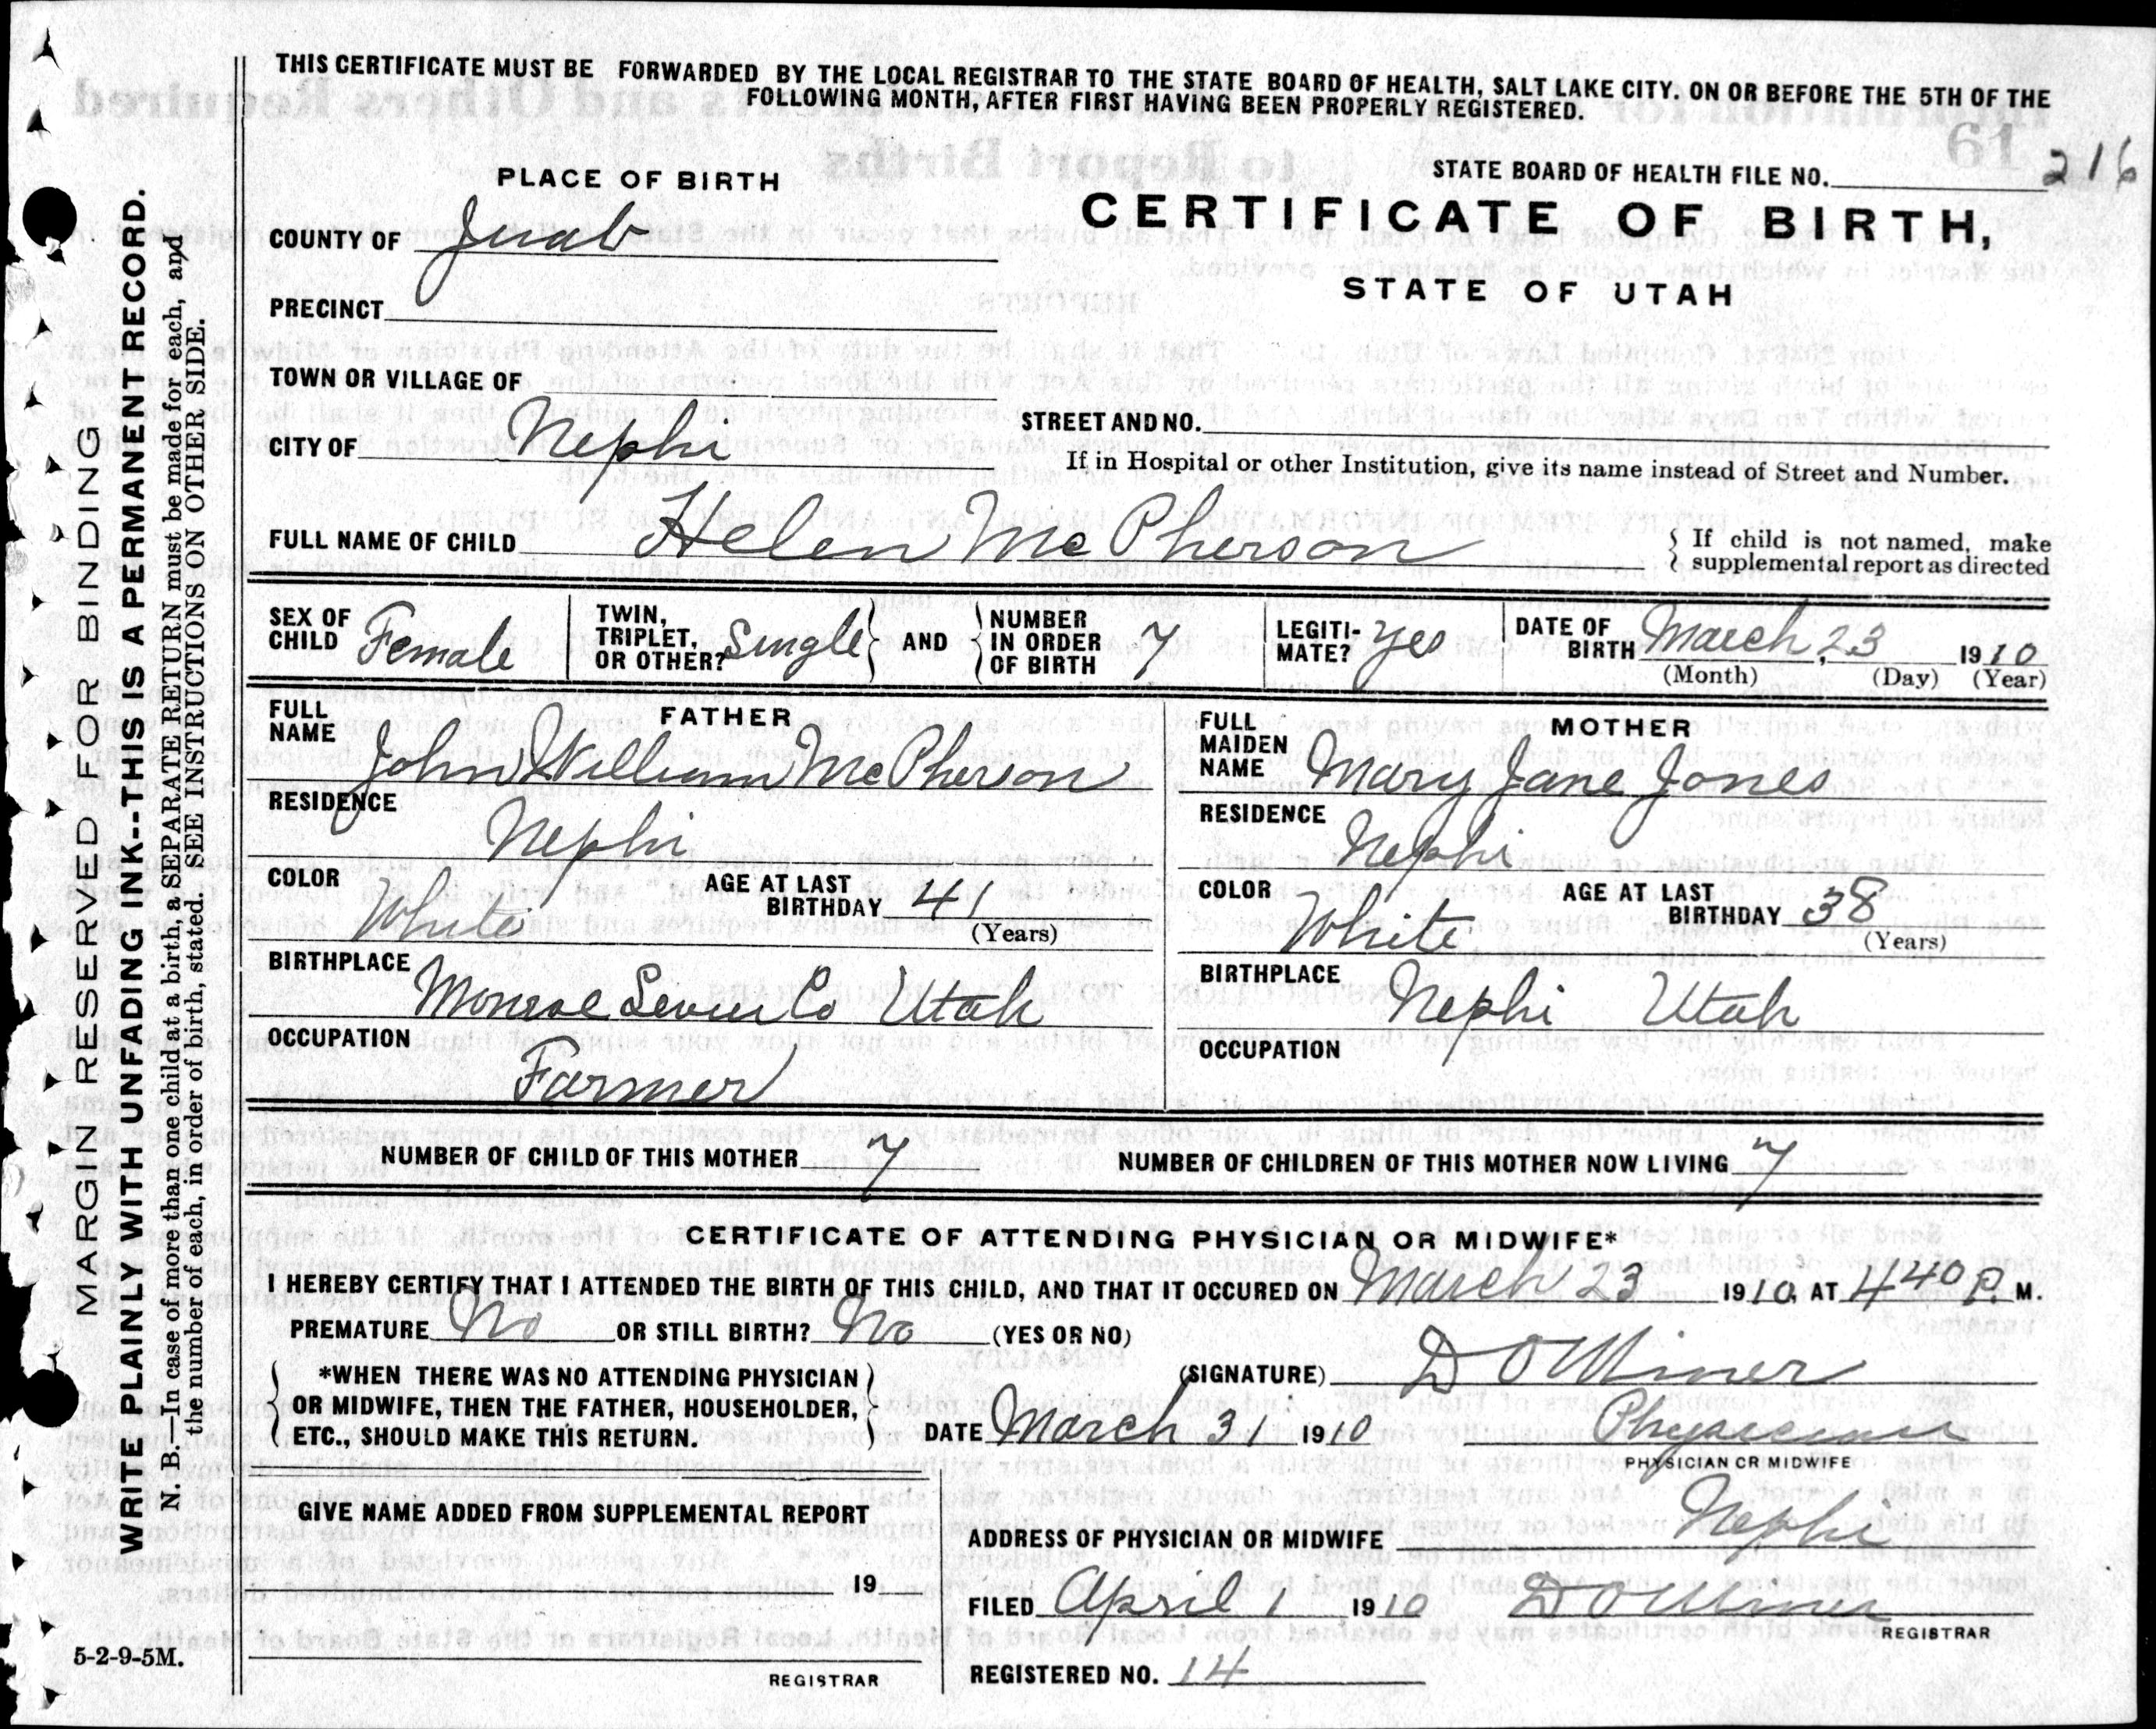 THIS CERTIFICATE MUST BE FORWARDED BY THE LOCAL REGISTRAR TO THE STATE BOARD OF HEALTH, SALT LAKE CITY. ON OR BEFORE THE 5TH OF THE
FOLLOWING MONTH, AFTER FIRST HAVING BEEN PROPERLY REGISTERED.
PLACE OF BIRTH
STATE BOARD OF HEALTH FILE NO. 216
61
CERTIFICATE OF BIRTH,
STATE OF UTAH
COUNTY OF Juab
PRECINCT
TOWN OR VILLAGE OF
CITY OF Nephi
STREET AND NO.
If in Hospital or other Institution, give its name instead of Street and Number.
FULL NAME OF CHILD Helen McPherson
{ If child is not named, make
supplemental report as directed
SEX OF CHILD Female
TWIN, TRIPLET, OR OTHER? Single } AND { NUMBER IN ORDER OF BIRTH 7
LEGITI-MATE? Yes
DATE OF BIRTH March, 23 1910
(Month) (Day) (Year)
FATHER
FULL NAME John William McPherson
RESIDENCE Nephi
COLOR White AGE AT LAST BIRTHDAY 41
(Years)
BIRTHPLACE Monroe Sevier Co Utah
OCCUPATION Farmer
MOTHER
FULL MAIDEN NAME Mary Jane Jones
RESIDENCE Nephi
COLOR White AGE AT LAST BIRTHDAY 38
(Years)
BIRTHPLACE Nephi Utah
OCCUPATION
NUMBER OF CHILD OF THIS MOTHER 7 NUMBER OF CHILDREN OF THIS MOTHER NOW LIVING 7
CERTIFICATE OF ATTENDING PHYSICIAN OR MIDWIFE*
I HEREBY CERTIFY THAT I ATTENDED THE BIRTH OF THIS CHILD, AND THAT IT OCCURED ON March 23 1910, AT 4 40 P. M.
PREMATURE No OR STILL BIRTH? No (YES OR NO)
{ *WHEN THERE WAS NO ATTENDING PHYSICIAN
OR MIDWIFE, THEN THE FATHER, HOUSEHOLDER,
ETC., SHOULD MAKE THIS RETURN. }
(SIGNATURE) D O Miner
DATE March 31 1910 Physician
PHYSICIAN OR MIDWIFE
GIVE NAME ADDED FROM SUPPLEMENTAL REPORT
19
REGISTRAR
ADDRESS OF PHYSICIAN OR MIDWIFE Nephi
FILED April 1 1910 D O Miner
REGISTRAR
REGISTERED NO. 14
MARGIN RESERVED FOR BINDING
WRITE PLAINLY WITH UNFADING INK--THIS IS A PERMANENT RECORD.
N. B.—In case of more than one child at a birth, a SEPARATE RETURN must be made for each, and
the number of each, in order of birth, stated. SEE INSTRUCTIONS ON OTHER SIDE.
5-2-9-5M.